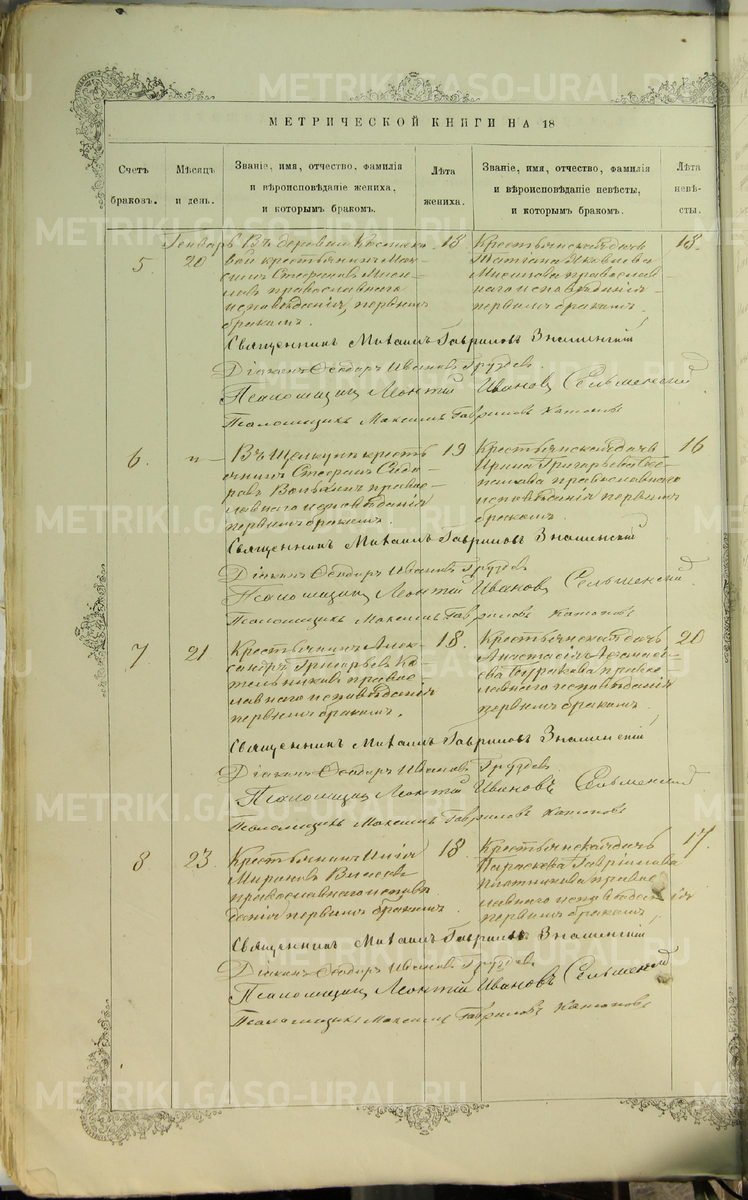 МЕТРИЧЕСКОЙ КНИГИ НА 18
Счетъ браковъ.
Мѣсяцъ и день.
Званіе, имя, отчество, фамилія
и вѣроисповѣданіе жениха,
и которымъ бракомъ.
Лѣта жениха.
Званіе, имя, отчество, фамилія
и вѣроисповѣданіе невѣсты,
и которымъ бракомъ.
Лѣта невѣ-
сты.
5
Генварь
20
Въ деревни
вой крестьянинъ Мак-
симъ Стефановъ
ловъ православнаго
исповѣданія, первымъ
бракомъ.
18
Крестьянская дочь
Татіана Яковлева
православ-
наго исповѣданія
первымъ бракомъ.
18.
Священникъ Михаилъ Гавриловъ Знаменскій
Діаконъ Ѳеодоръ Ивановъ Груздевъ
Псаломщикъ Леонтій Ивановъ Сельменский
Псаломщикъ Максимъ Гавриловъ
6.
"
Въ Щелкунъ кресть
янинъ Стефанъ Сидо-
ровъ правос-
лавнаго исповѣданія
первымъ бракомъ.
19
Крестьянская дочь
Ирина Григорьева
православнаго
исповѣданія первымъ
бракомъ.
16
Священникъ Михаилъ Гавриловъ Знаменскій
Діаконъ Ѳеодоръ Ивановъ Груздевъ
Псаломщикъ Леонтій Ивановъ Сельменский
Псаломщикъ Максимъ Гавриловъ
7
21.
Крестьянинъ Алек-
сандръ Григорьевъ Ко-
тельниковъ правос-
лавнаго исповѣданія
первымъ бракомъ.
18.
Крестьянская дочь
Анастасія
правос-
лавнаго исповѣданія
первымъ бракомъ.
20
Священникъ Михаилъ Гавриловъ Знаменскій
Діаконъ Ѳеодоръ Ивановъ Груздевъ
Псаломщикъ Леонтій Ивановъ Сельменский
Псаломщикъ Максимъ Гавриловъ
8
23.
Крестьянинъ Илія
Мироновъ
православнаго исповѣ-
данія первымъ бракомъ.
18.
Крестьянская дочь
Параскева Гавріилова
Плотникова правос-
лавнаго исповѣданія
первымъ бракомъ.
17.
Священникъ Михаилъ Гавриловъ Знаменскій
Діаконъ Ѳеодоръ Ивановъ Груздевъ
Псаломщикъ Леонтій Ивановъ Сельменский
Псаломщикъ Максимъ Гавриловъ
METRIKI.GASO-URAL.RU